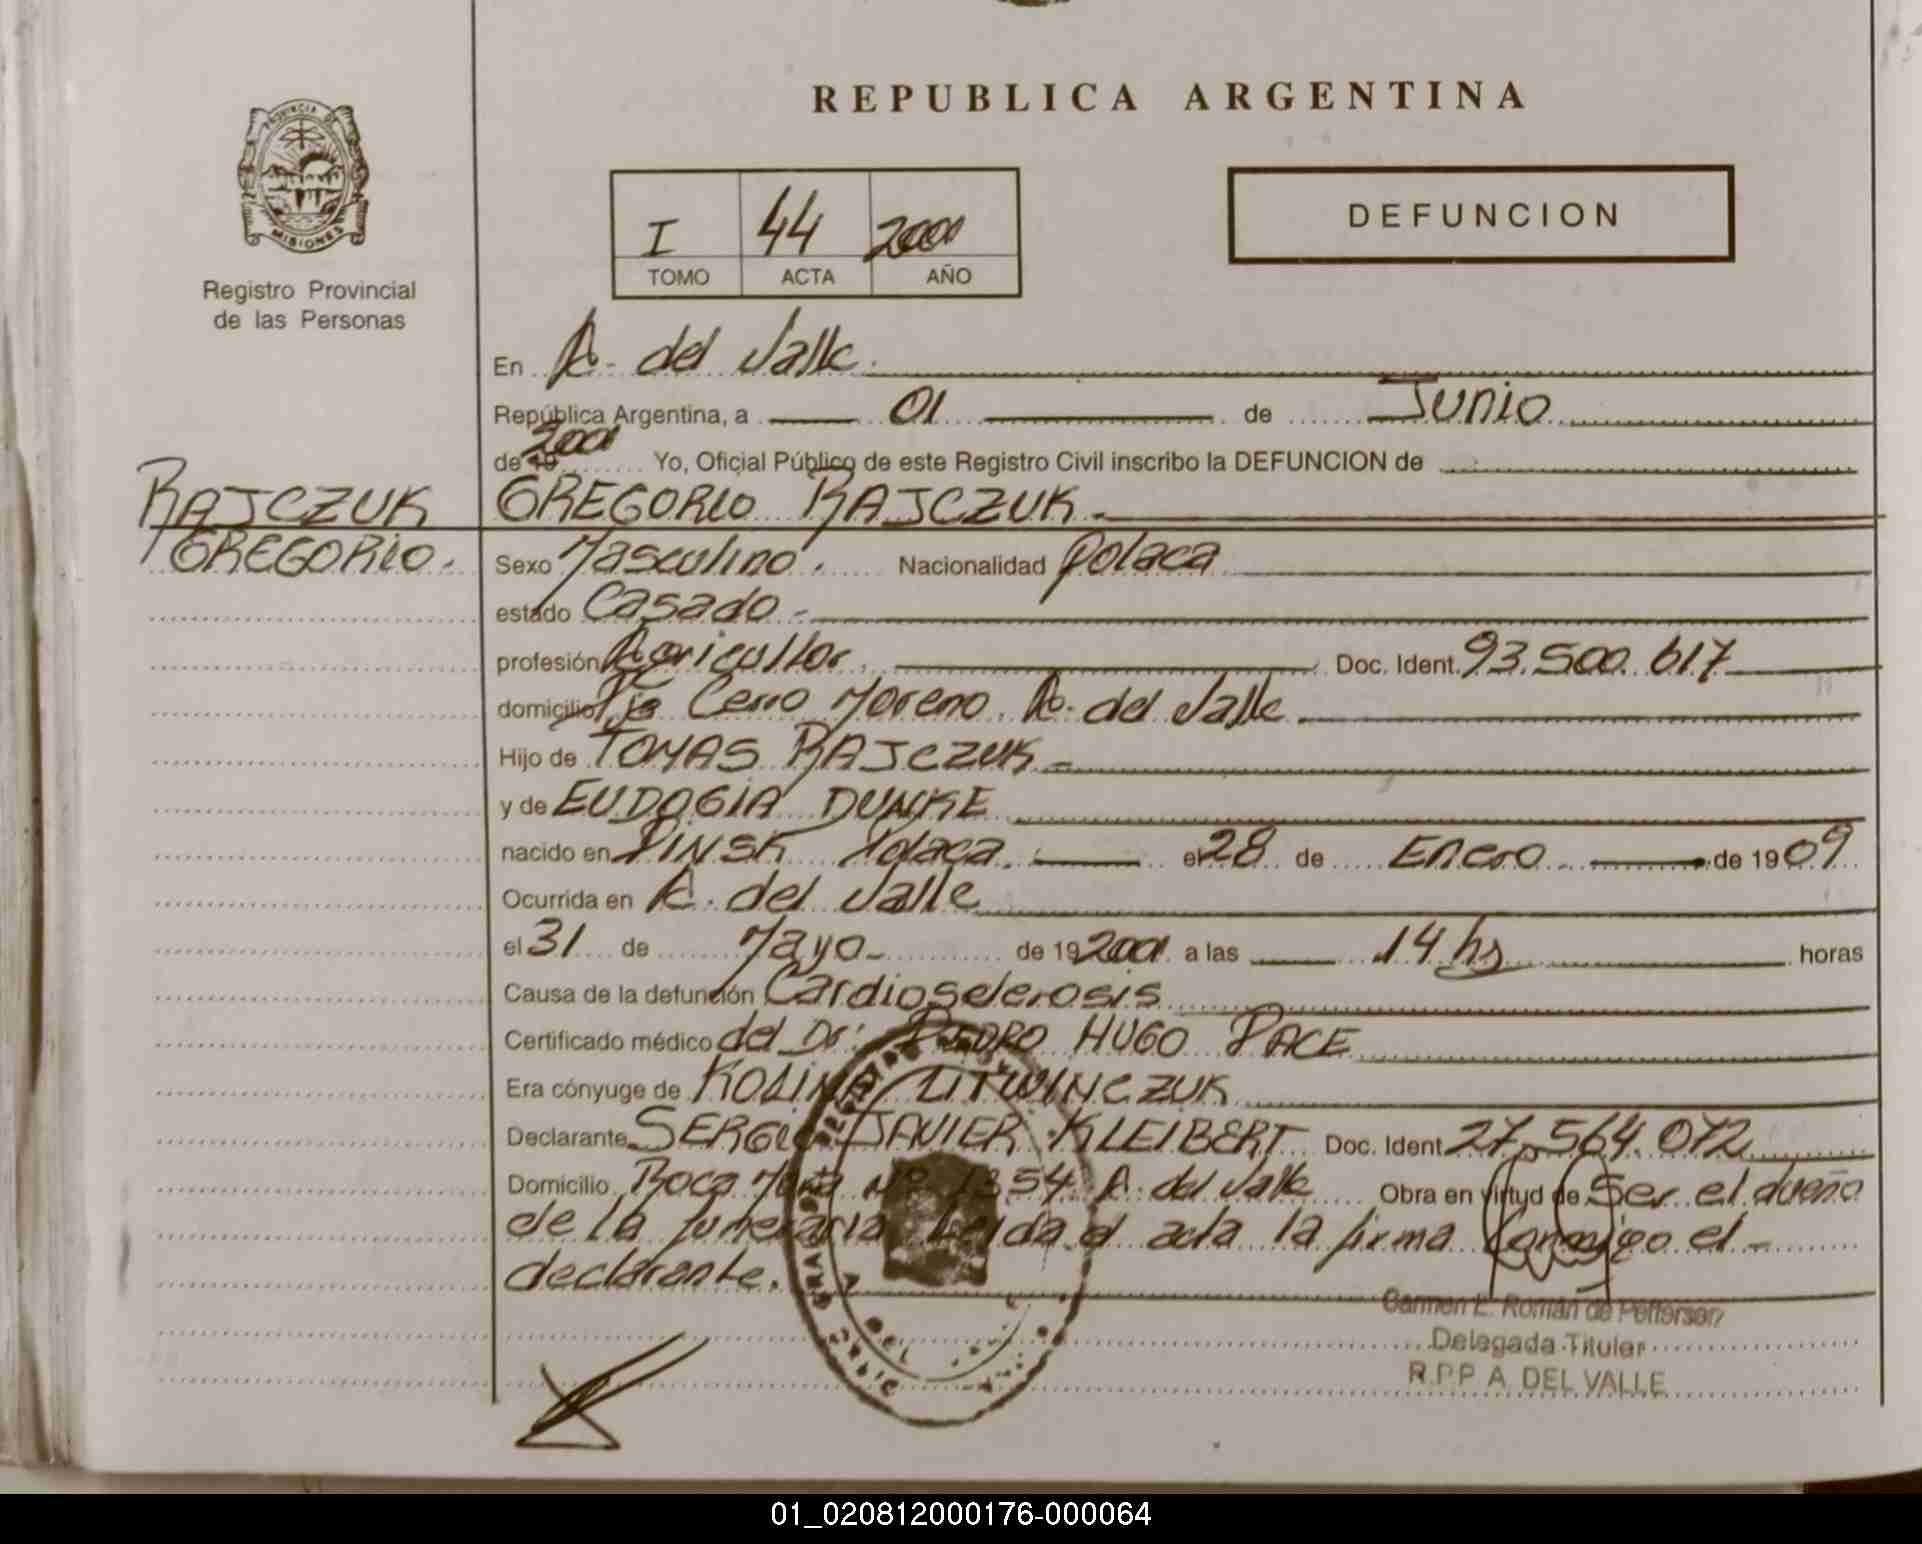 REPUBLICA ARGENTINA
PROVINCIA DE
MISIONES
Registro Provincial
de las Personas
I 44 2001
TOMO ACTA AÑO
DEFUNCION
En A. del Valle.
República Argentina, a 01 de Junio
de 19 2001 Yo, Oficial Público de este Registro Civil inscribo la DEFUNCION de
RAJCZUK
GREGORIO.
GREGORIO RAJCZUK.-
Sexo Masculino. Nacionalidad Polaca
estado Casado.-
profesión Agricultor. Doc. Ident. 93.500.617
domicilio Pje Cerro Moreno. A. del Valle
Hijo de TOMAS RAJCZUK-
y de EUDOGIA DUNKE
nacido en PINSK Polaca. el 28 de Enero de 1909
Ocurrida en A. del Valle
el 31 de Mayo- de 19 2001 a las 14 hs horas
Causa de la defunción Cardiosclerosis
Certificado médico del Dr: PEDRO HUGO PACE
Era cónyuge de LITWINCZUK
Declarante SERGIO JAVIER KLEIBERT Doc. Ident 27.564.072
Domicilio Roca Nº 1354 A. del Valle Obra en virtud de Ser el dueño
de la funeraria Leida el acta la firma Conmigo el-
declarante.
Carmen E. Román de Pefferson
Delegada Titular
R.P.P A. DEL VALLE
01_020812000176-000064